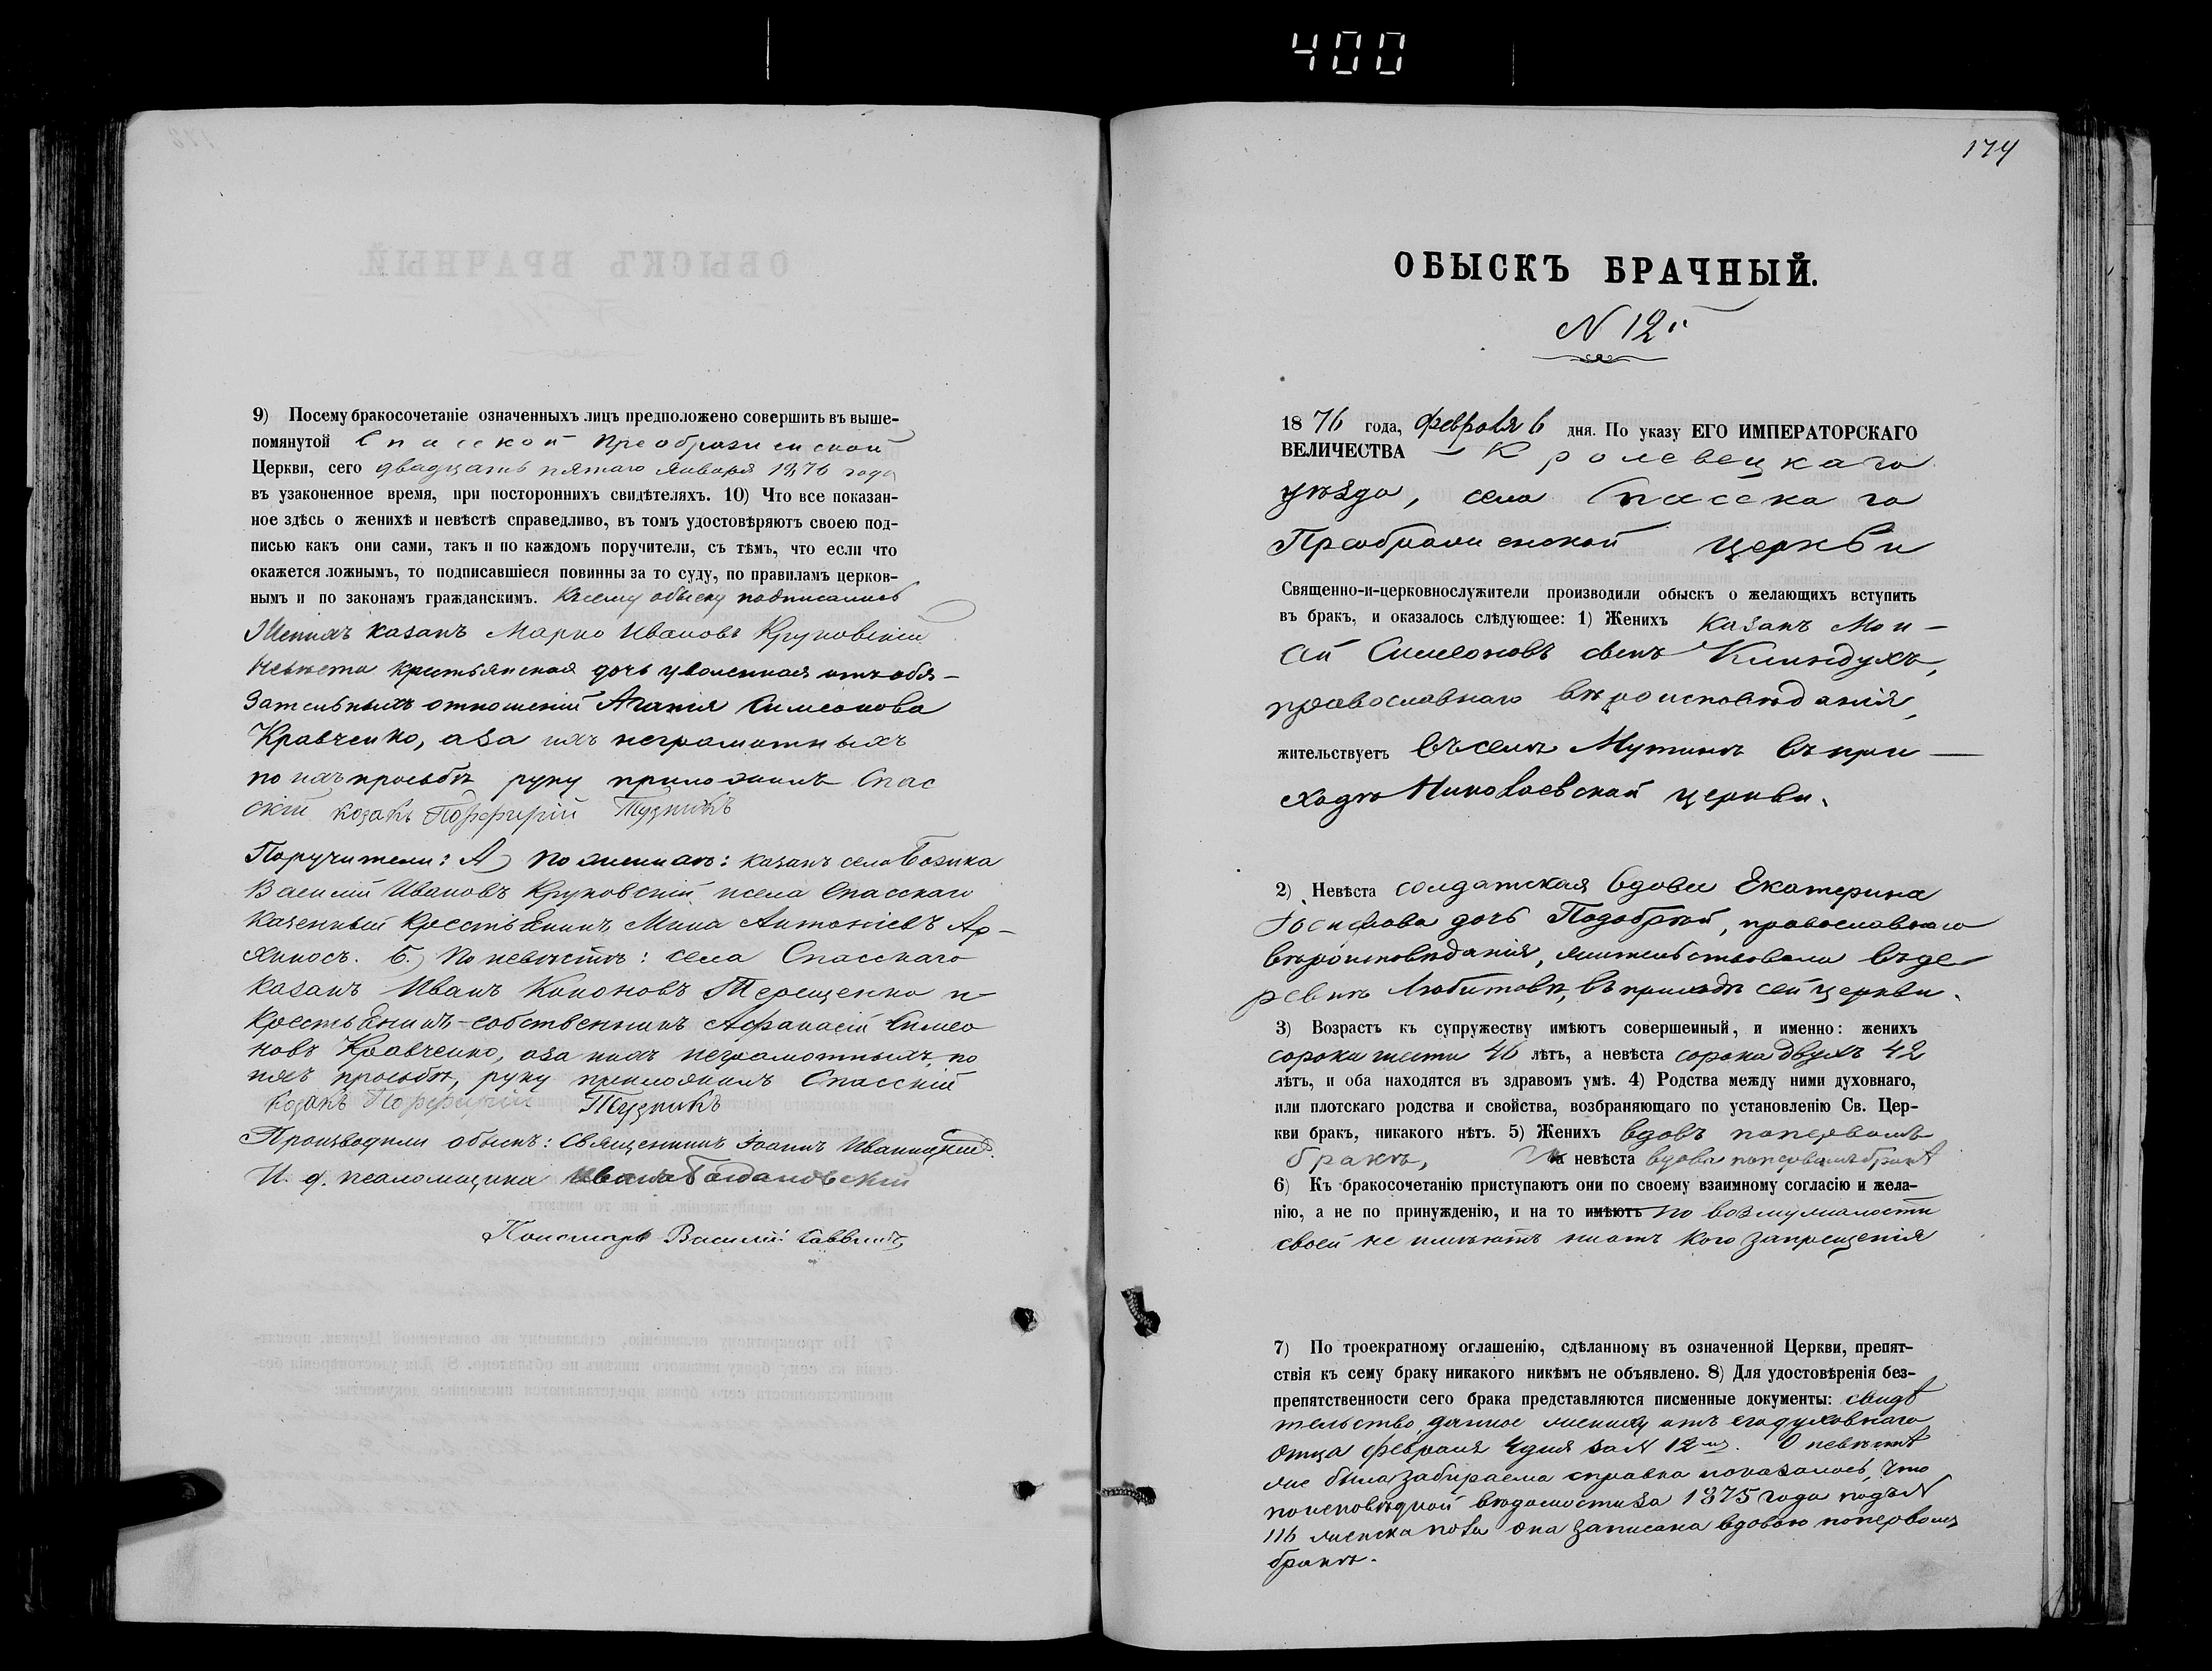 400
9) Посему бракосочетаніе означенныхъ лицъ предположено совершить въ выше-
помянутой Спасской Преображенской
Церкви, сего двадцать пятаго Января 1876 года
въ узаконенное время, при постороннихъ свидѣтеляхъ. 10) Что все показан-
ное здѣсь о женихѣ и невѣстѣ справедливо, въ томъ удостовѣряютъ своею под-
писью какъ они сами, такъ и по каждомъ поручители, съ тѣмъ, что если что
окажется ложнымъ, то подписавшіеся повинны за то суду, по правиламъ церков-
нымъ и по законамъ гражданскимъ. Къ сему обыску подписались
Женихъ казакъ Марко Ивановъ Круковскій
Невѣста крестьянская дочь уволенная отъ обя-
зательныхъ отношеній Агапія Симеонова
Кравченко, а за ихъ неграмотныхъ
по ихъ просьбѣ руку приложилъ Спас
скій козакъ Порфирій Тузникъ
Поручители: А) По женихѣ: казакъ села
Василій Ивановъ Круковскій и села Спасскаго
казенный крестьянинъ Мина Антоніевъ Ар-
Б.) По невѣстѣ: села Спасскаго
казакъ Иванъ Кононовъ Терещенко и
крестьянинъ-собственникъ Афанасій Симео
новъ Кравченко, а за нихъ неграмотныхъ, по
ихъ просьбѣ, руку приложилъ Спасскій
козакъ Порфирій Тузникъ
Производили обыскъ: Священникъ Іоаннъ
И. д. псаломщика Иванъ Богдановскій
Пономарь Василій Саввичъ
174
ОБЫСКЪ БРАЧНЫЙ.
N 12й
1876 года, Февраля 6 дня. По указу ЕГО ИМПЕРАТОРСКАГО
ВЕЛИЧЕСТВА Кролевецкаго
уѣзда, села Спасскаго
Преображенской церкви
Священно-и-церковнослужители производили обыскъ о желающихъ вступить
въ бракъ, и оказалось слѣдующее: 1) Женихъ Казакъ Мои-
сей Симеоновъ сынъ Клиндухъ,
православнаго вѣроисповѣданія,
жительствуетъ въ селѣ Мутинѣ въ при-
ходѣ Николаевской церкви.
2) Невѣста солдатская вдова Екатерина
Іосифова дочь Подобрій, православнаго
вѣроисповѣданія, жительствовала въ де
ревнѣ Любитовѣ, въ приходѣ сей церкви.
3) Возрастъ къ супружеству имѣютъ совершенный, и именно: женихъ
сорока шести 46 лѣтъ, а невѣста сорока двухъ 42
лѣтъ, и оба находятся въ здравомъ умѣ. 4) Родства между ними духовнаго,
или плотскаго родства и свойства, возбраняющаго по установленію Св. Цер-
кви бракъ, никакого нѣтъ. 5) Женихъ вдовъ по первомъ
бракѣ, а невѣста вдова по первомъ бракѣ
6) Къ бракосочетанію приступаютъ они по своему взаимному согласію и жела-
нію, а не по принужденію, и на то имѣютъ по возмужалости
своей не имѣютъ ни отъ кого запрещенія
7) По троекратному оглашенію, сдѣланному въ означенной Церкви, препят-
ствія къ сему браку никакого никѣмъ не объявлено. 8) Для удостовѣренія без-
препятственности сего брака представляются писменные документы: свидѣ
тельство, данное жениху отъ его духовнаго
отца февраля 4 дня за N 12мъ. О невѣстѣ
же была забираема справка показалось, что
по исповѣдной вѣдомости за 1875 года подъ N
116 женска пола она записана вдовою по первомъ
бракѣ.